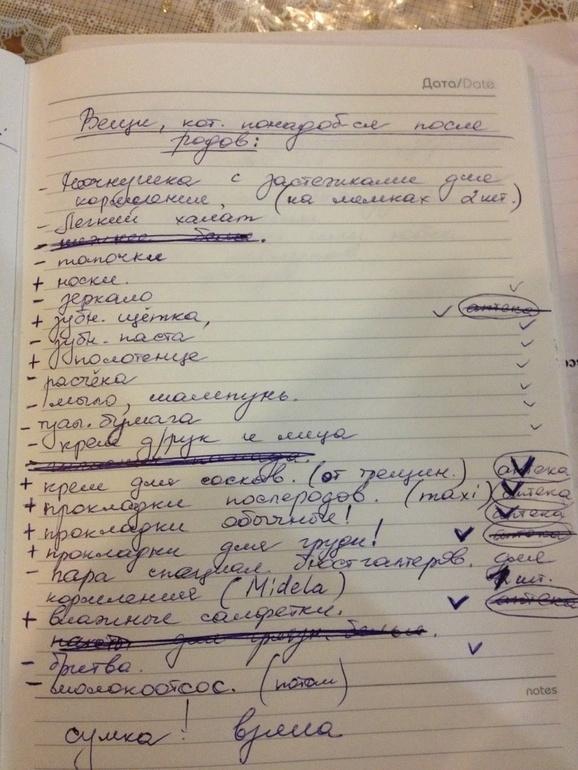 Дата/Date
Вещи, кот. понадоб-ся после
родов:
- Ночнушка с застежками для
кормления, (на лямках 2 шт.)
- Легкий халат
- тапочки
+ носки.
- зеркало
+ зубн. щётка, аптека
- зубн. паста
+ полотенце
- расчёка
- мыло, шампунь.
- туал. бумага
- крем д/рук и лица
+ крем для сосков. (от трещин.) аптека
+ прокладки послеродов. (maxi) аптека
+ прокладки обычные! аптека
+ прокладки для груди! аптека
- пара специал. бюстгалтеров. для
кормления (Midela) шт.
+ влажные салфетки. аптека
- бритва.
- молокоотсос. (потом)
notes
сумка! взяла